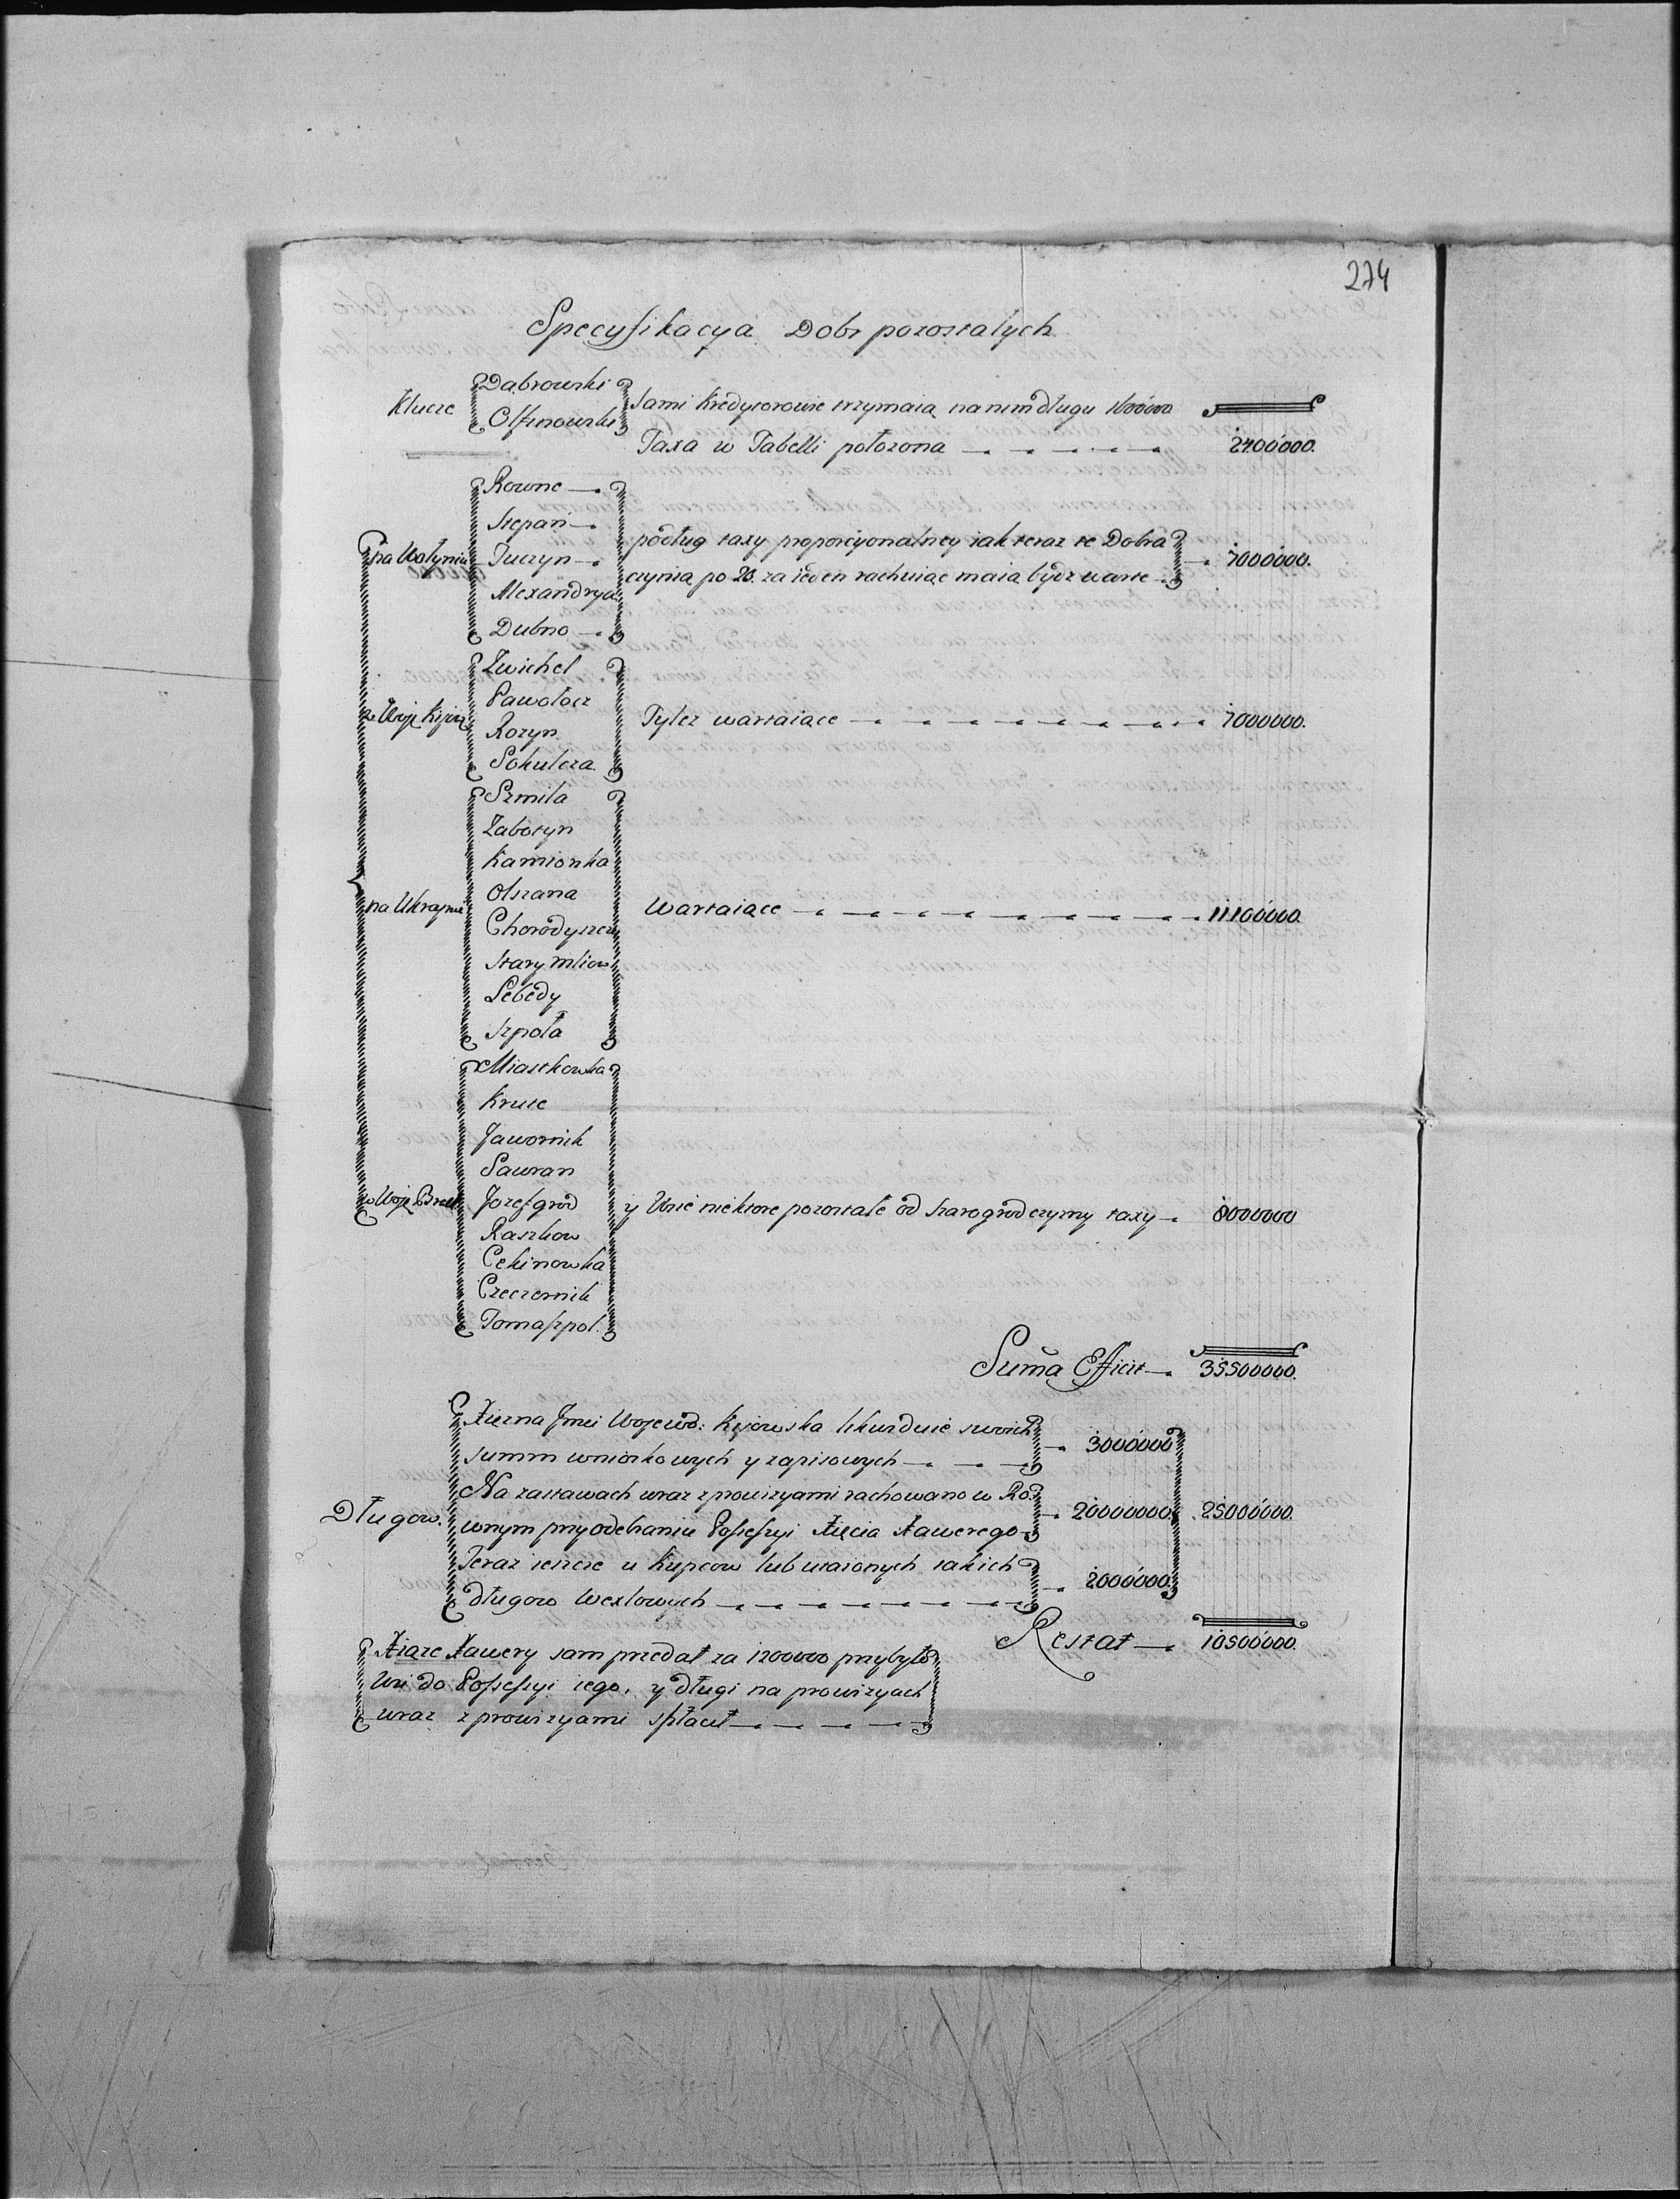 274
Specyfikacya Dobr pozostałych
Klucze
Dąbrowski
Olsznowski
sami Kredytorowie trzymaią na nim długu 1600000
Taxa w Tabelli położona 2400000.
na Wołyniu
Rowne
Stepań
Tuczyn
Alexandrya
Dubno
podług taxy proporcyonalney iak teraz te Dobra
czynią po 20. za ieden rachuiąc maią bydz warte
7000000.
w Woje Kijow
Zwichel
Pawołocz
Rozyn
Sokulcza.
Tylez wartaiące 7000000.
na Ukrajnie
Szmila
Zabotyn
Kamionka
Olszana
Chorodyszcze
Stary Mliow
Lebedy
Szpoła
Wartaiące 11100000.
w Woje Bracł
Miastkowka
Krute
Jawornik
Sawran
Jozefgrod
Raszkow
Cekinowka
Czeczernik
Tomaszpol.
y Wsie niektore pozostałe od Szarogrodczyzny taxy 8000000
Suma Efficit 35500000.
Długow.
Xiezna Jmci Wojewod: Kijowska likwiduie swoich
summ wnioskowych y zapisowych 3000000
Na zastawach wraz z prowizyami rachowano w Ro:
wnym przy odebraniu Possessyi Xięcia Xawerego
20000000
Teraz ieszcze u Kupcow lub u takich
długow Wexlowych 2000000.
25000000.
Restat 10500000.
Xiąze Xawery sam przedał za 1200000 przybyło
Wsi do Possessyi iego, y długi na prowizyach
wraz z prowizyami spłacił